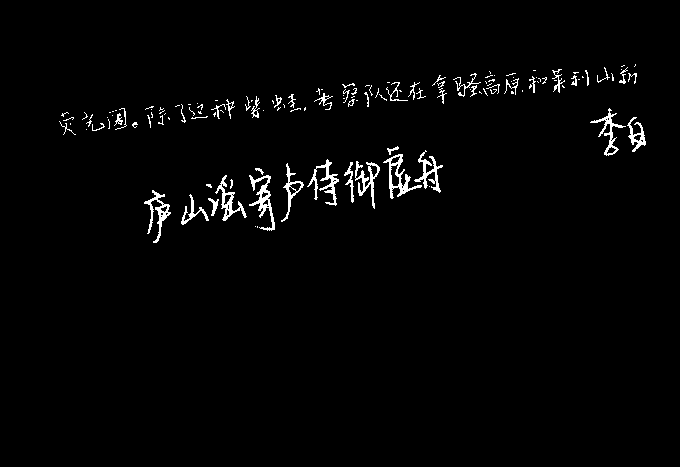 贡范围。除了这种柴蛙,考察队还在拿骚高原和莱利山新
李白
庐山谣寄卢侍御虚舟